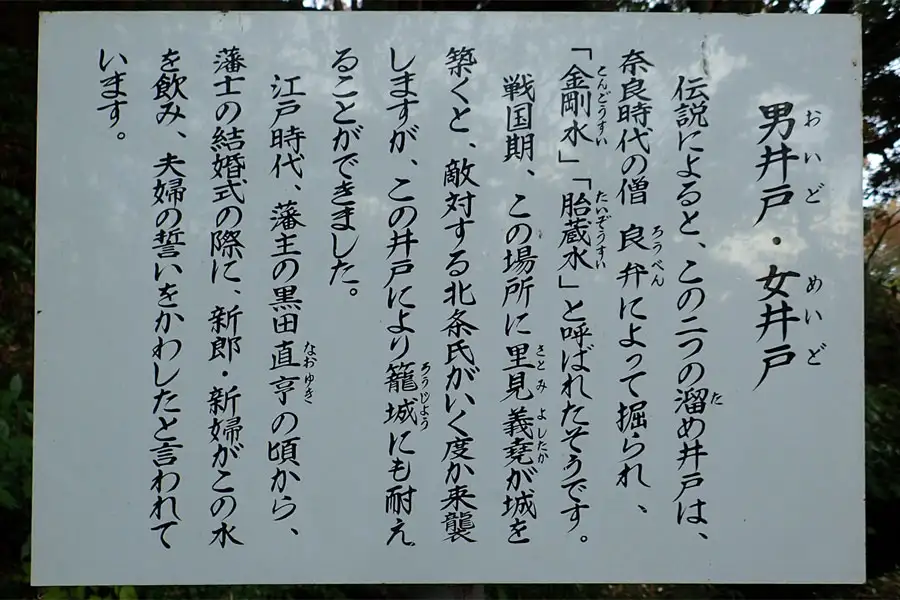 男井戸・女井戸
伝説によると、この二つの溜め井戸は、
奈良時代の僧 良弁によって掘られ、
「金剛水」「胎蔵水」と呼ばれたそうです。
戦国期、この場所に里見義堯が城を
築くと、敵対する北条氏がいく度か来襲
しますが、この井戸により籠城にも耐え
ることができました。
江戸時代、藩主の黒田直亨の頃から、
藩士の結婚式の際に、新郎・新婦がこの水
を飲み、夫婦の誓いをかわしたと言われて
います。